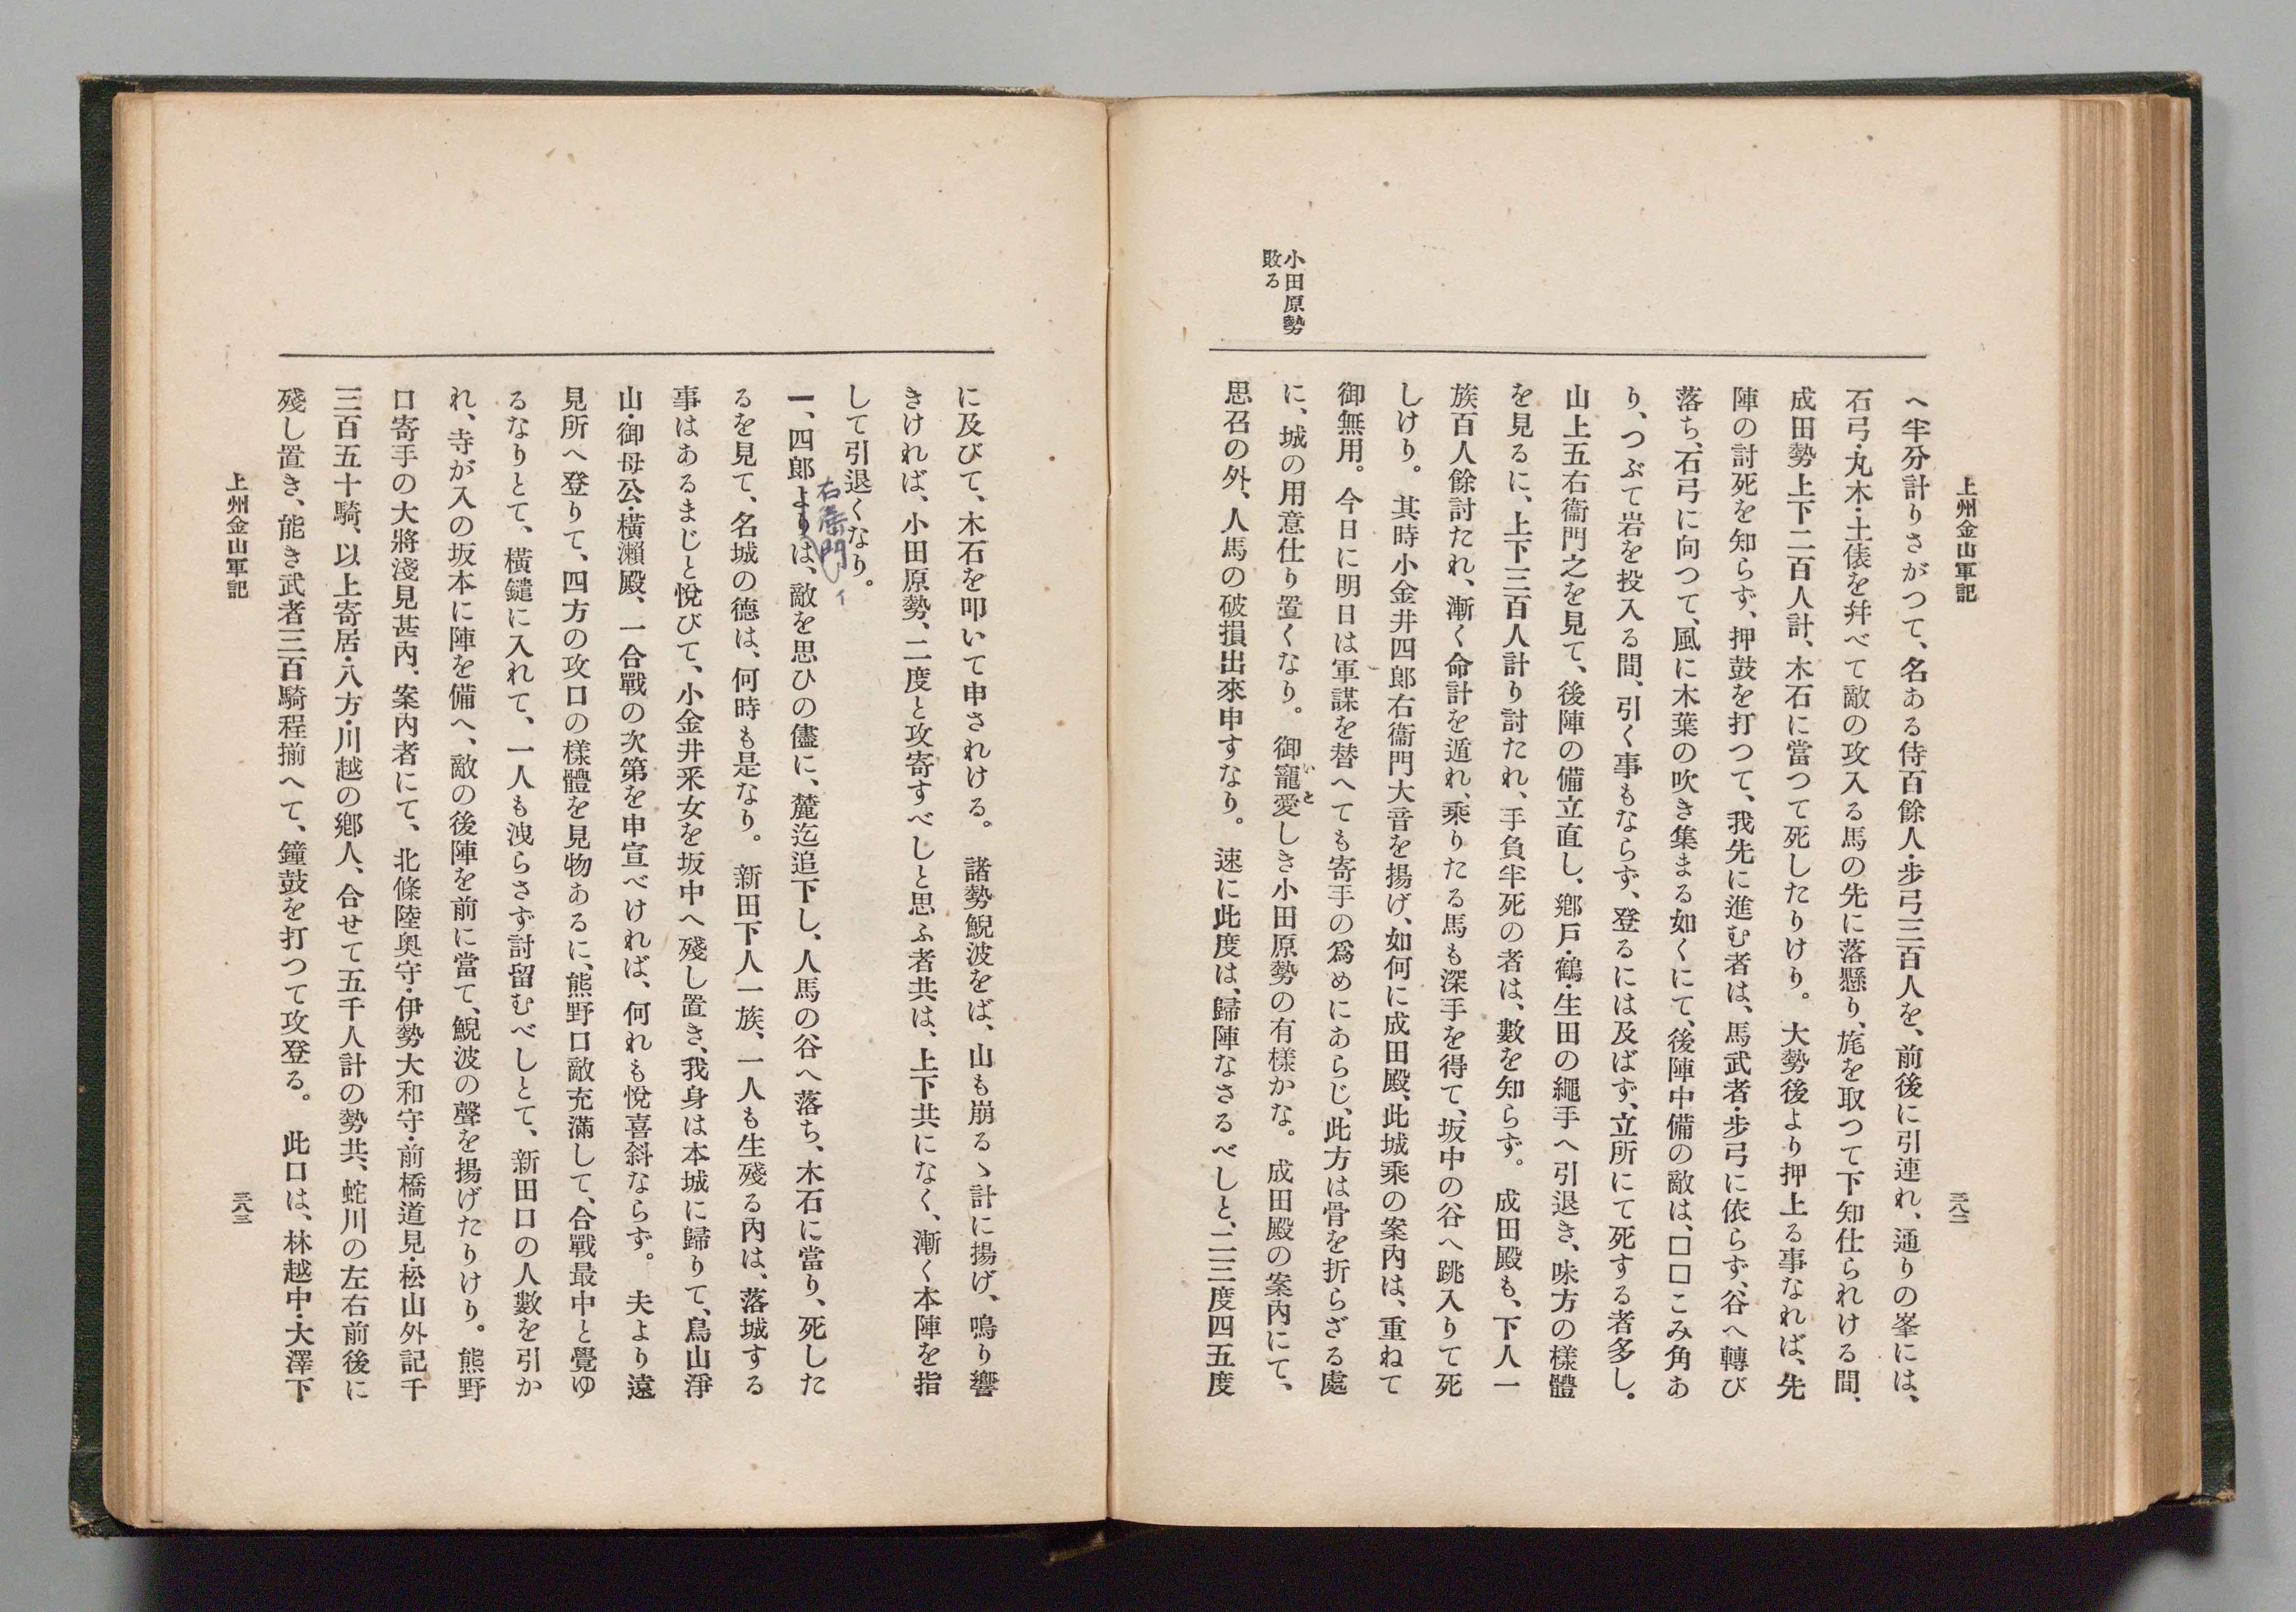 上州金山軍記
三八二
小田原勢
敗る
へ半分計りさがつて、名ある侍百餘人・步弓三百人を、前後に引連れ、通りの峯には、
石弓・丸木・土俵を幷べて敵の攻入る馬の先に落懸り、旄を取つて下知仕られける間、
成田勢上下二百人計、木石に當つて死したりけり。大勢後より押上る事なれば、先
陣の討死を知らず、押鼓を打つて、我先に進む者は、馬武者・步弓に依らず、谷へ轉び
落ち、石弓に向つて、風に木葉の吹き集まる如くにて、後陣中備の敵は、□□こみ角あ
り、つぶて岩を投入る間、引く事もならず、登るには及ばず、立所にて死する者多し。
山上五右衞門之を見て、後陣の備立直し、鄕戶・鶴・生田の繩手へ引退き、味方の樣體
を見るに、上下三百人計り討たれ、手負半死の者は、數を知らず。成田殿も、下人一
族百人餘討たれ、漸く命計を遁れ、乘りたる馬も深手を得て、坂中の谷へ跳入りて死
しけり。其時小金井四郎右衞門大音を揚げ、如何に成田殿、此城乘の案內は、重ねて
御無用。今日に明日は軍謀を替へても寄手の爲めにあらじ、此方は骨を折らざる處
に、城の用意仕り置くなり。御寵愛しき小田原勢の有樣かな。成田殿の案內にて、
いと
思召の外、人馬の破損出來申すなり。速に此度は、歸陣なさるべしと、二三度四五度
に及びて、木石を叩いて申されける。諸勢鯢波をば、山も崩るゝ計に揚げ、鳴り響
きければ、小田原勢、二度と攻寄すべしと思ふ者共は、上下共になく、漸く本陣を指
して引退くなり。
右衛門イ
一、四郎よりは、敵を思ひの儘に、麓迄追下し、人馬の谷へ落ち、木石に當り、死した
るを見て、名城の德は、何時も是なり。新田下人一族、一人も生殘る內は、落城する
事はあるまじと悅びて、小金井釆女を坂中へ殘し置き、我身は本城に歸りて、鳥山淨
山・御母公・橫瀨殿、一合戰の次第を申宣べければ、何れも悅喜斜ならず。夫より遠
見所へ登りて、四方の攻口の樣體を見物あるに、熊野口敵充滿して、合戰最中と覺ゆ
るなりとて、橫鑓に入れて、一人も洩らさず討留むべしとて、新田口の人數を引か
れ、寺が入の坂本に陣を備へ、敵の後陣を前に當て、鯢波の聲を揚げたりけり。熊野
口寄手の大將淺見甚內、案內者にて、北條陸奧守・伊勢大和守・前橋道見・松山外記千
三百五十騎、以上寄居・八方・川越の鄕人、合せて五千人計の勢共、蛇川の左右前後に
殘し置き、能き武者三百騎程揃へて、鐘鼓を打つて攻登る。此口は、林越中・大澤下
上州金山軍記
三八三